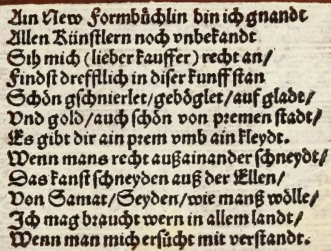 Ain New Formbüchlin bin ich gnandt
Allen Künstlern noch vnbekandt
Sih mich (lieber kauffer) recht an/
Findst drefftlich in diser kunst stan
Schön gschnierlet/geböglet/auf gladt/
Vnd gold/auch schön von premen stadt/
Es gibt dir ain prem vmb ain kleydt.
Wenn mans recht außainander schneydt/
Das kanst schneyden auß der Ellen/
Von Samat/Seyden/wie manß wölle/
Ich mag braucht wern in allem landt/
Wenn man mich ersücht mit verstandt.